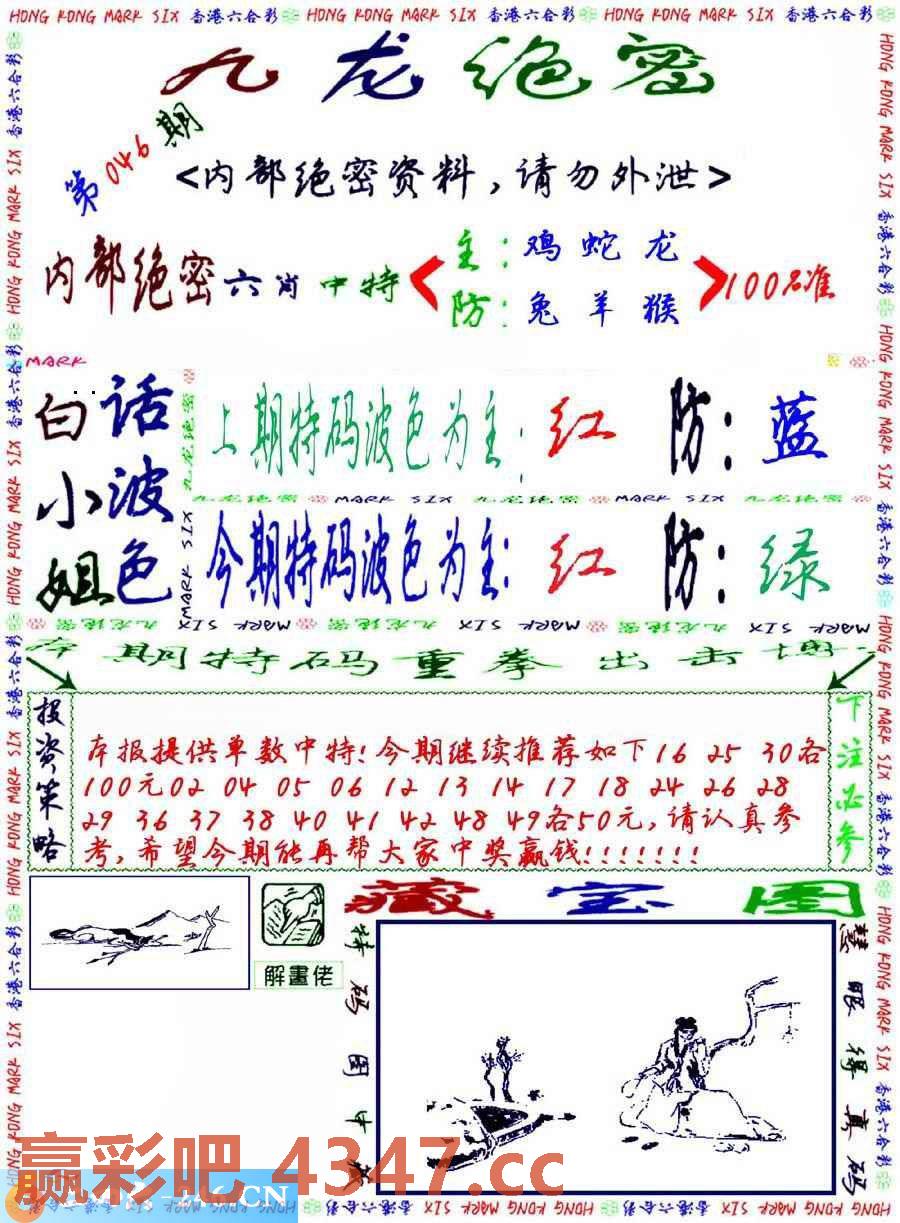 HONG KONG MARK SIX 香港六合彩 HONG KONG MARK SIX 香港六合彩 HONG KONG MARK SIX 香港六合彩
九龙绝密
第046期
<内部绝密资料,请勿外泄>
内部绝密六肖中特
主:鸡蛇龙
防:兔羊猴
100%准
MARK
白话
小波
姐色
上期特码波色为主:红 防:蓝
九龙绝密 MARK SIX 九龙绝密 MARK SIX 九龙绝密
今期特码波色为主:红 防:绿
九龙绝密 MARK SIX
期特码重拳出击
投资策略
本报提供单数中特!今期继续推荐如下16 25 30各
100元02 04 05 06 12 13 14 17 18 24 26 28
29 36 37 38 40 41 42 48 49各50元,请认真参
考,希望今期能再帮大家中奖赢钱!!!!!!!
下注必参
藏宝图
解畫佬
特码图中藏
慧眼得真码
赢彩吧 4347.cc
.CN